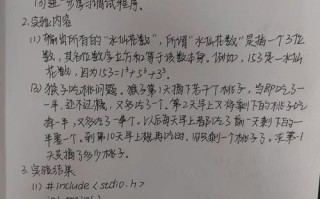 (3) 进一步学习调试程序。
2. 实验内容
(1) 输出所有的"水仙花数",所谓"水仙花数"是指一个3位
数,其各位数字立方和等于该数本身。例如,153是一水仙
花数,因为153=1³+5³+3³.
(2) 猴子吃桃问题。猴子第1天摘下若干个桃子,当即吃了一
半,还不过瘾,又多吃了一个。第2天早上又将剩下的桃子吃
一半,又多吃了一个。以后每天早上都吃了前一天剩下的一
半零一个。到第10天早上想再吃时,只剩一个桃子了。求第1
天共摘了多少桃子。
3. 实验结果
(1) #include <stdio.h>